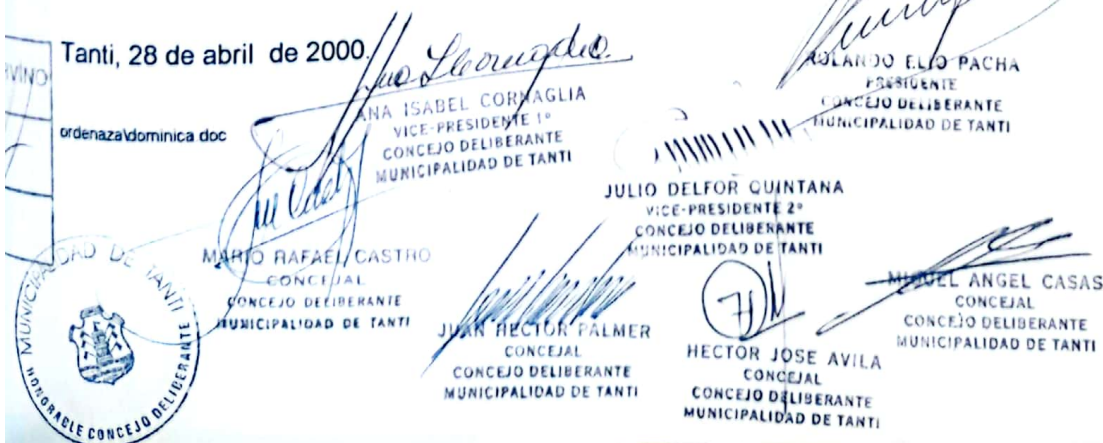 Tanti, 28 de abril de 2000.
ordenaza\dominica doc
ANA ISABEL CORNAGLIA
VICE-PRESIDENTE 1º
CONCEJO DELIBERANTE
MUNICIPALIDAD DE TANTI
ROLANDO ELIO PACHA
PRESIDENTE
CONCEJO DELIBERANTE
MUNICIPALIDAD DE TANTI
JULIO DELFOR QUINTANA
VICE-PRESIDENTE 2º
CONCEJO DELIBERANTE
MUNICIPALIDAD DE TANTI
MARIO RAFAEL CASTRO
CONCEJAL
CONCEJO DELIBERANTE
MUNICIPALIDAD DE TANTI
JUAN HECTOR PALMER
CONCEJAL
CONCEJO DELIBERANTE
MUNICIPALIDAD DE TANTI
HECTOR JOSE AVILA
CONCEJAL
CONCEJO DELIBERANTE
MUNICIPALIDAD DE TANTI
MIGUEL ANGEL CASAS
CONCEJAL
CONCEJO DELIBERANTE
MUNICIPALIDAD DE TANTI
MUNICIPALIDAD DE TANTI
HONORACLE CONCEJO DELIBERANTE